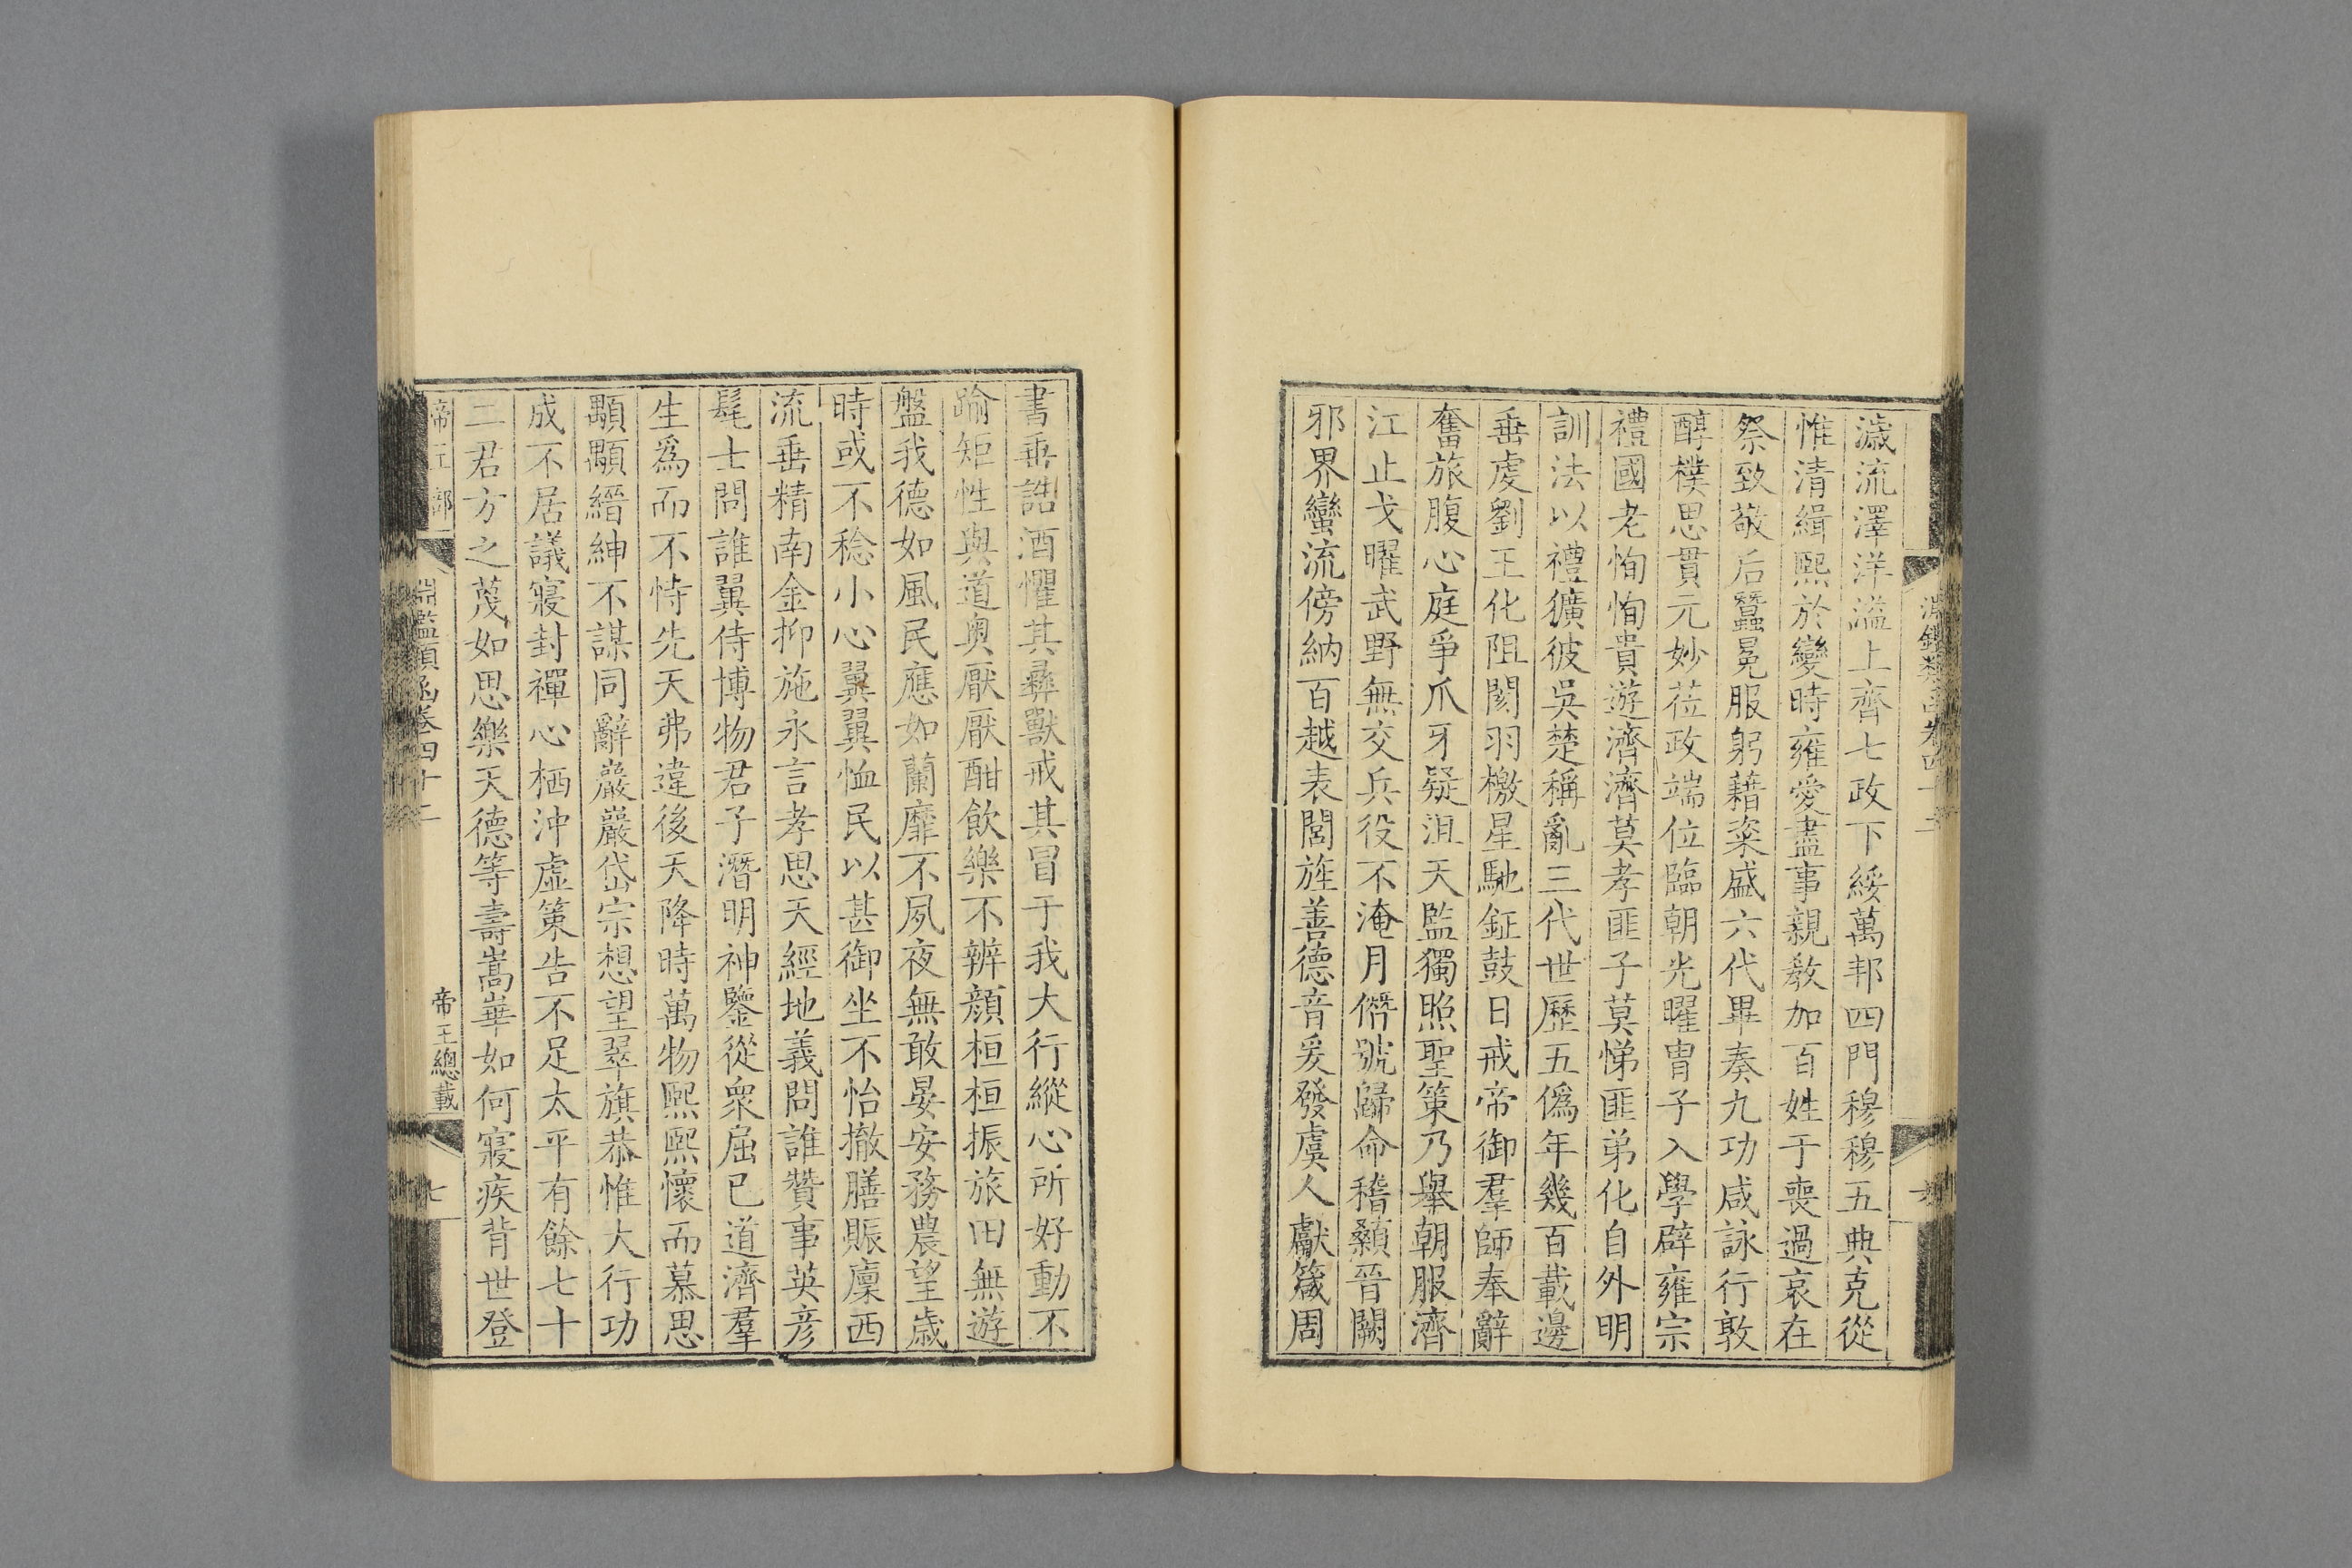 淵鑑類函卷四十二
濊流澤洋溢上齊七政下綏萬邦四門穆穆五典克從
惟清緝熙於變時雍愛盡事親教加百姓于喪過哀在
祭致敬后蠶冕服躬藉粢盛六代畢奏九功咸詠行敦
醇樸思貫元妙莅政端位臨朝光曜胄子入學辟雍宗
禮國老恂恂貴遊濟濟莫孝匪子莫悌匪弟化自外明
訓法以禮獷彼吳楚稱亂三代世歷五僞年幾百載邊
垂虔劉王化阻閡羽檄星馳鉦鼓日戒帝御羣師奉辭
奮旅腹心庭爭爪牙疑沮天監獨照聖策乃舉朝服濟
江止戈曜武野無交兵役不淹月僭號歸命稽顙晉闕
邪界蠻流傍納百越表閭旌善德音爰發虞人獻箴周
書垂誥酒懼其彞獸戒其冒于我大行縱心所好動不
踰矩性與道奧厭厭酣飲樂不辨顔桓桓振旅田無遊
盤我德如風民應如蘭靡不夙夜無敢晏安務農望歲
時或不稔小心翼翼恤民以甚御坐不怡撤膳賑廩西
流垂精南金抑施永言孝思天經地義問誰贊事英彦
髦士問誰翼侍博物君子潛明神鑒從衆屈已道濟羣
生爲而不恃先天弗違後天降時萬物熙熙懷而慕思
顒顒縉紳不謀同辭巖巖岱宗想望翠旗恭惟大行功
成不居議寢封禪心栖沖虛策告不足太平有餘七十
二君方之蔑如思樂天德等壽嵩華如何寢疾背世登
帝王部
淵鑑類函卷四十二
帝王總載
七